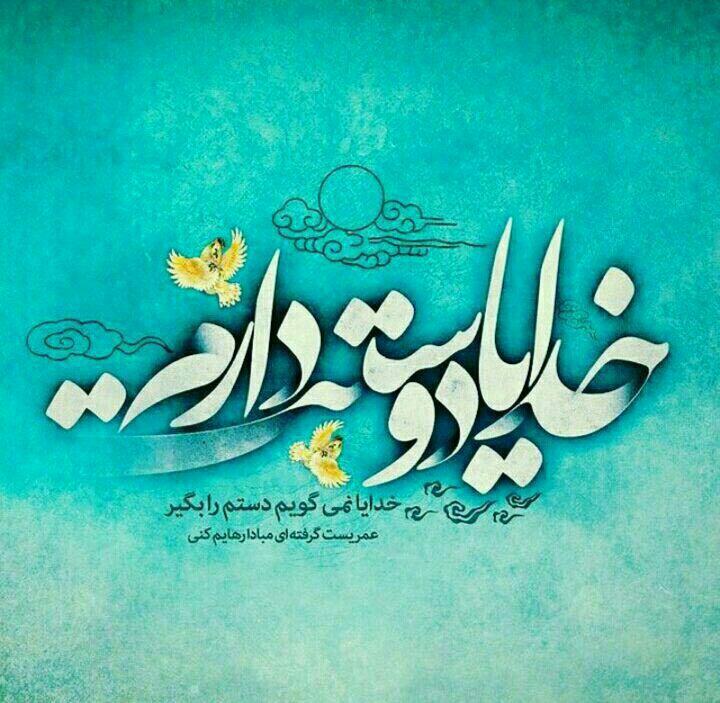 خدایا دوستت دارم
خدایا نمی گویم دستم را بگیر
عمریست گرفته ای مبادا رهایم کنی